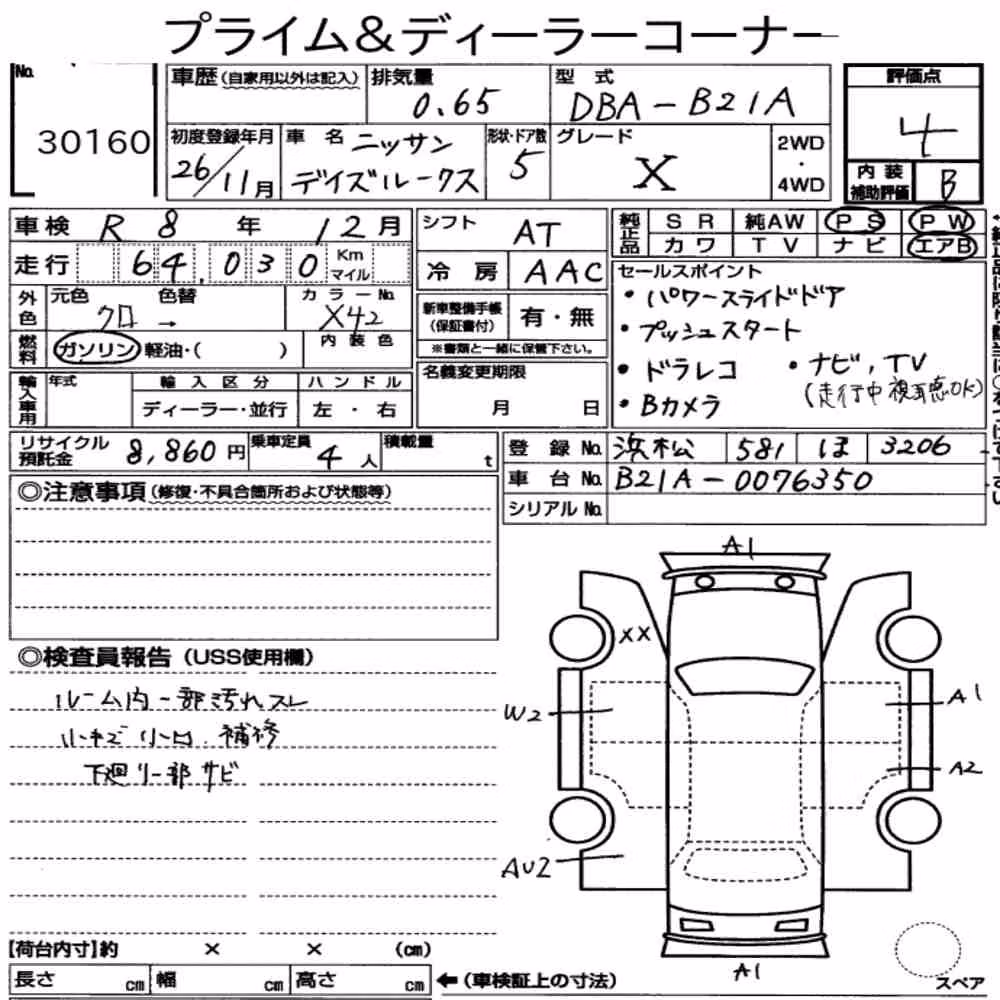 プライム&ディーラーコーナー
No.
30160
車歴(自家用以外は記入)
排気量
0.65
型式
DBA-B21A
評価点
4
初度登録年月
26/11月
車名
ニッサン
デイズルークス
形状・ドア数
5
グレード
X
2WD
・
4WD
内装
補助評価
B
車検 R 8 年 12 月
シフト
AT
純正品
SR 純AW PS PW
カワ TV ナビ エアB
走行 64,030 Km
マイル
冷房 AAC
セールスポイント
・パワースライドドア
・プッシュスタート
・ドラレコ ・ナビ,TV
(走行中視聴OK)
・Bカメラ
外色
元色 色替
クロ →
カラーNo.
X42
新車整備手帳
(保証書付)
有・無
※書類と一緒に保管下さい。
燃料
ガソリン 軽油・( )
内装色
名義変更期限
月 日
輸入車用
年式
輸入区分
ディーラー・並行
ハンドル
左・右
リサイクル
預託金
8,860円
乗車定員
4人
積載量
t
登録No. 浜松 581 ほ 3206
車台No. B21A-0076350
シリアルNo.
◎注意事項(修復・不具合箇所および状態等)
◎検査員報告(USS使用欄)
ルーム内一部汚れスレ
小キズ 小凹.補修
下廻り一部サビ
A1
XX
W2
A1
A2
AU2
A1
スペア
【荷台内寸】約 × × (cm)
長さ cm 幅 cm 高さ cm ←(車検証上の寸法)